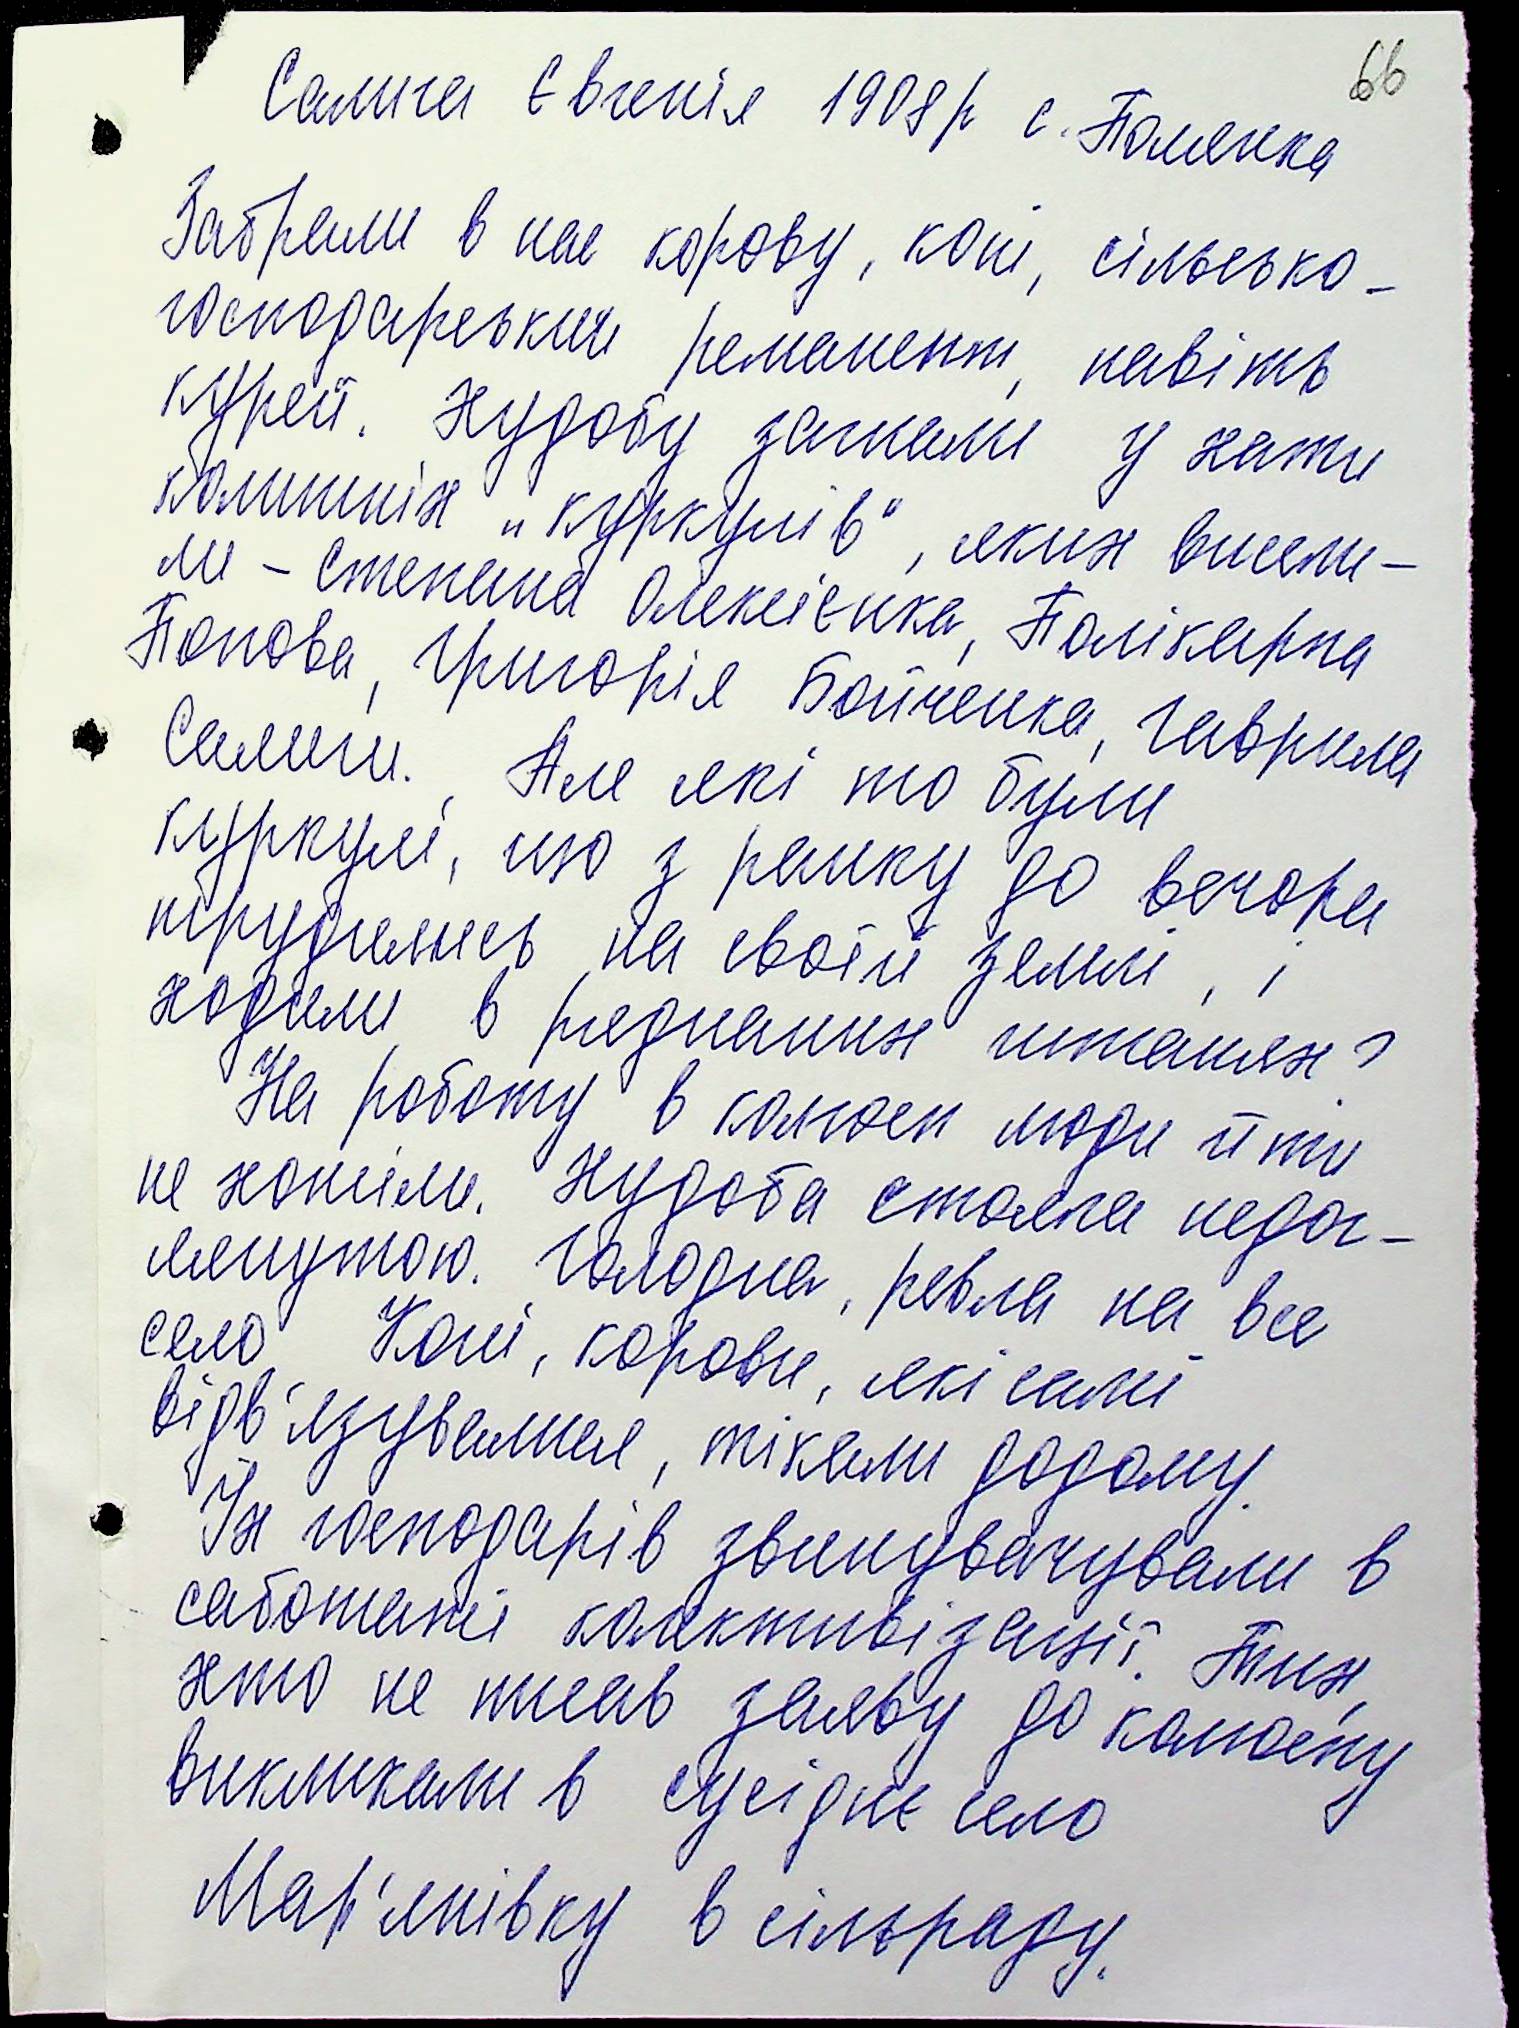 66
Салига Євгенія 1908р с. Полянка
Забрали в нас корову, коні, сільсько-
господарський реманент, навіть
курей. Худобу загнали у хати
колишніх „куркулів", яких висели-
ли - Степана Олексієнка, Полікарпа
Попова, Григорія Бойченка, Гаврила
Салиги. Але які то були
куркулі, що з ранку до вечора
трудились на своїй землі, і
ходили в ряднаних штанях?
На роботу в колгосп люди йти
не хотіли. Худоба стояла недог-
лянутою. Голодна, ревла на все
село Коні, корови, які самі
відв'язувалися, тікали додому.
Їх господарів звинувачували в
саботажі колективізації. Тих,
хто не писав заяву до колгоспу
викликали в сусіднє село
Мар'янівку в сільраду.